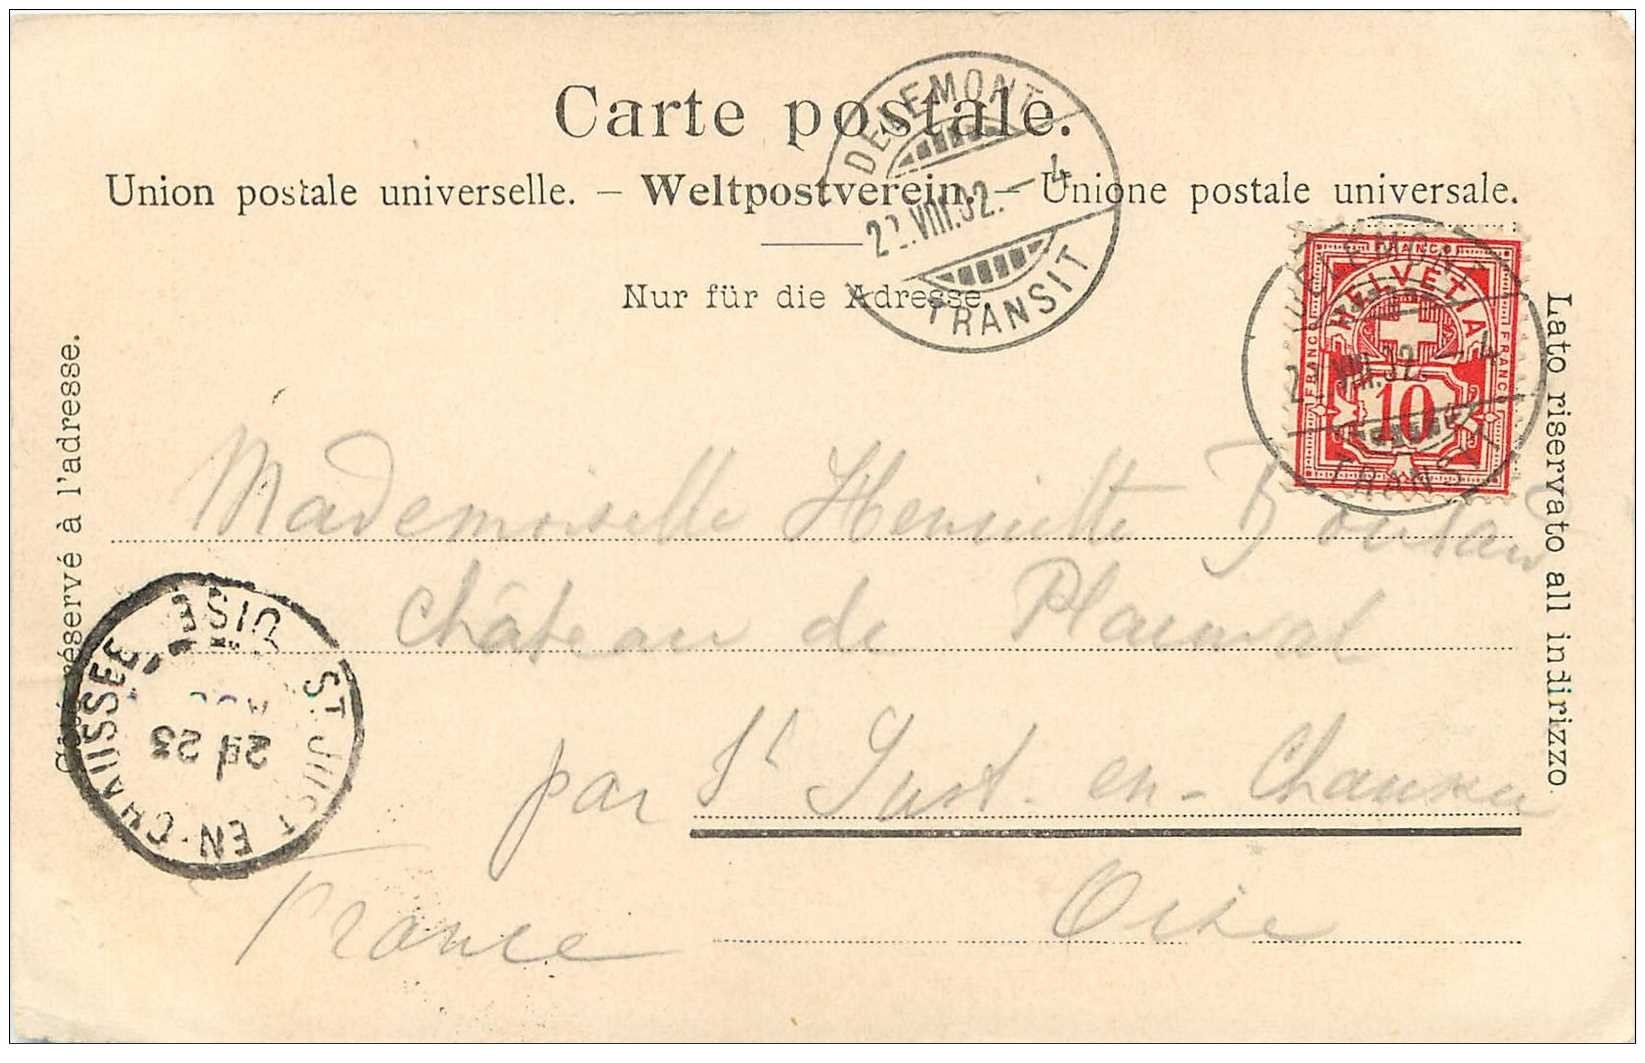 Carte postale.
Union postale universelle. – Weltpostverein. – Unione postale universale.
Nur für die Adresse
DELEMONT
22.VIII.02.–4
TRANSIT
DELEMONT
VIII.02.–4
TRANSIT
FRANCO
HELVETIA
FRANCO
FRANCO
10
réservé à l'adresse.
Lato riservato all indirizzo
Mademoiselle Henriette
Château de Plainval
par St Just-en-Chaussée
Oise
France
ST JUST EN-CHAUSSEE
OISE
23